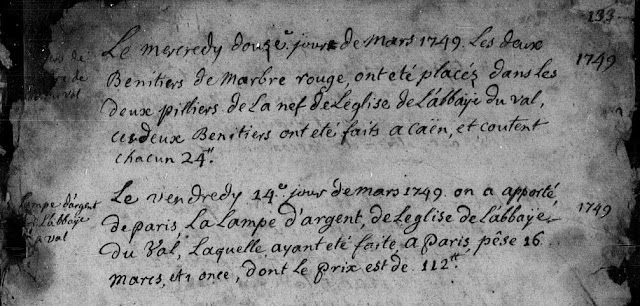 133
Le mercredy douze.e jour de Mars 1749. Les deux
1749
Benitiers de Marbre rouge, ont eté placéz dans les
deux pilliers de La nef de Leglise de L'abbaÿe du val,
ces deux Benitiers ont eté faits a caën, et coutent
chacun 24.tt
Le vendredy 14.e jour de mars 1749. on a apporté,
1749
Lampe d'argent
L'abbaÿe
val
de paris, La Lampe d'argent, de Leglise de L'abbaÿe
du Val, Laquelle ayant eté faite a Paris, pêse 16
marcs, et 1 once, dont Le prix est de 112.tt